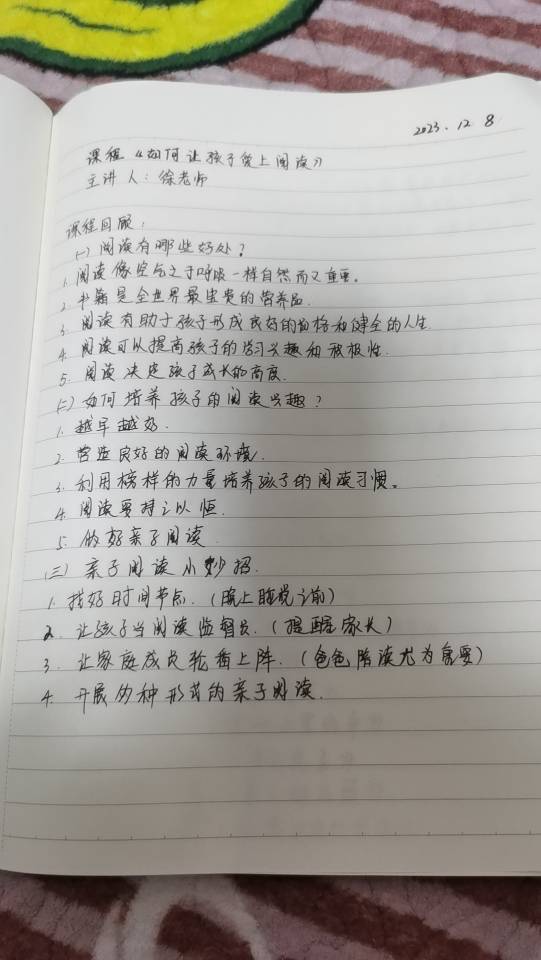 2023.12 8
课程《如何让孩子爱上阅读》
主讲人：徐老师
课程回顾：
(一) 阅读有哪些好处？
1. 阅读像空气之于呼吸一样自然而又重要。
2. 书籍是全世界最宝贵的营养品.
3. 阅读有助于孩子形成良好的品格和健全的人生.
4. 阅读可以提高孩子的学习兴趣和积极性.
5. 阅读决定孩子成长的高度.
(二) 如何培养孩子的阅读兴趣？
1. 越早越好.
2. 营造良好的阅读环境.
3. 利用榜样的力量培养孩子的阅读习惯。
4. 阅读要持之以恒.
5. 做好亲子阅读
(三) 亲子阅读小妙招.
1. 找好时间节点.（晚上睡觉之前）
2. 让孩子当阅读监督员.（提醒家长）
3. 让家庭成员轮番上阵.（爸爸陪读尤为重要）
4. 开展多种形式的亲子阅读.